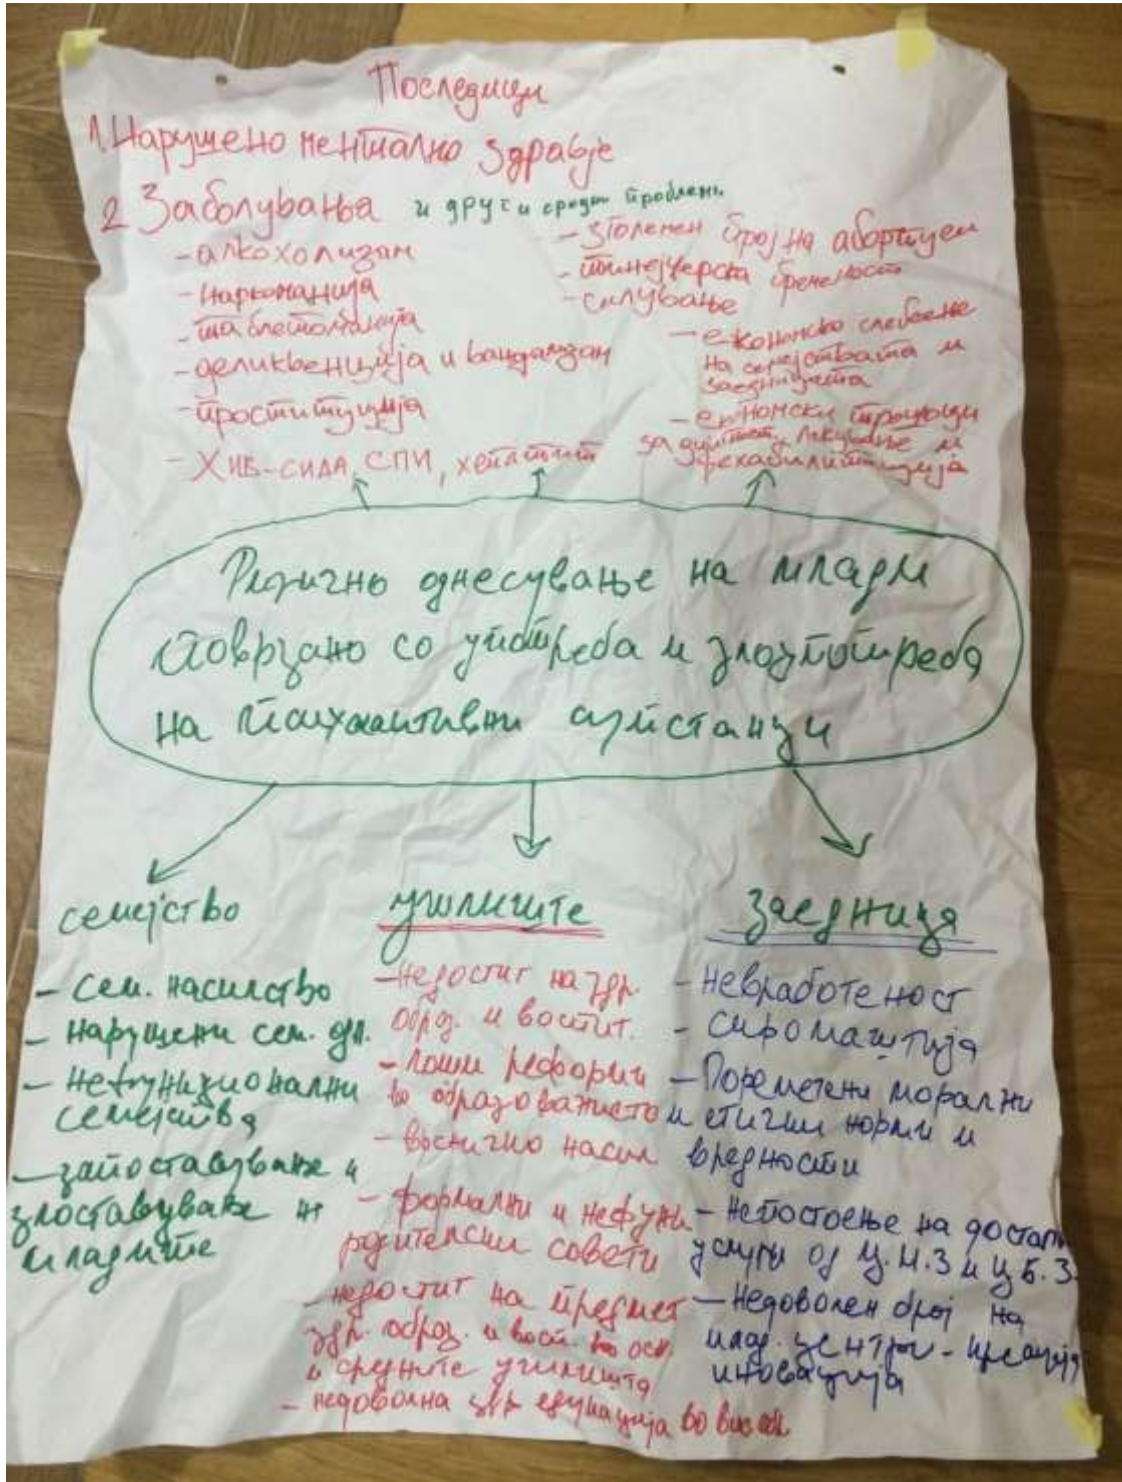 Последици
1. Нарушено ментално здравје
2 Заболувања и други сродни проблеми
- алкохолизам
- наркоманија
- таблетоманија
- деликвенција и вандализам
- проституција
- ХИВ-СИДА, СПИ, хепатит
- зголемен број на абортуси
- тинејџерска бременост
- силување
- економско слабеење
на семејствата и
заедницата
- економски трошоци
за дијагност, лекување и
рехабилитација
Ризично однесување на млади
поврзано со употреба и злоупотреба
на психоактивни супстанци
семејство
- сем. насилство
- нарушени сем. одн.
- нефункционални
семејства
- запоставување и
злоставување на
младите
училиште
- недостиг на здр.
образ. и воспит.
- лоши реформи
во образованието
- врснично насил
- формални и нефункц
родителски совети
- недостиг на предмет
здр. образ. и восп. во осн.
и средните училишта
- недоволна здр едукација во
заедница
- невработеност
- сиромаштија
- Пореметени морални
и етички норми и
вредности
- непостоење на достап
услуги од Ц.М.З и Ц.Б.З.
- недоволен број на
млад. центри - креација
иновација